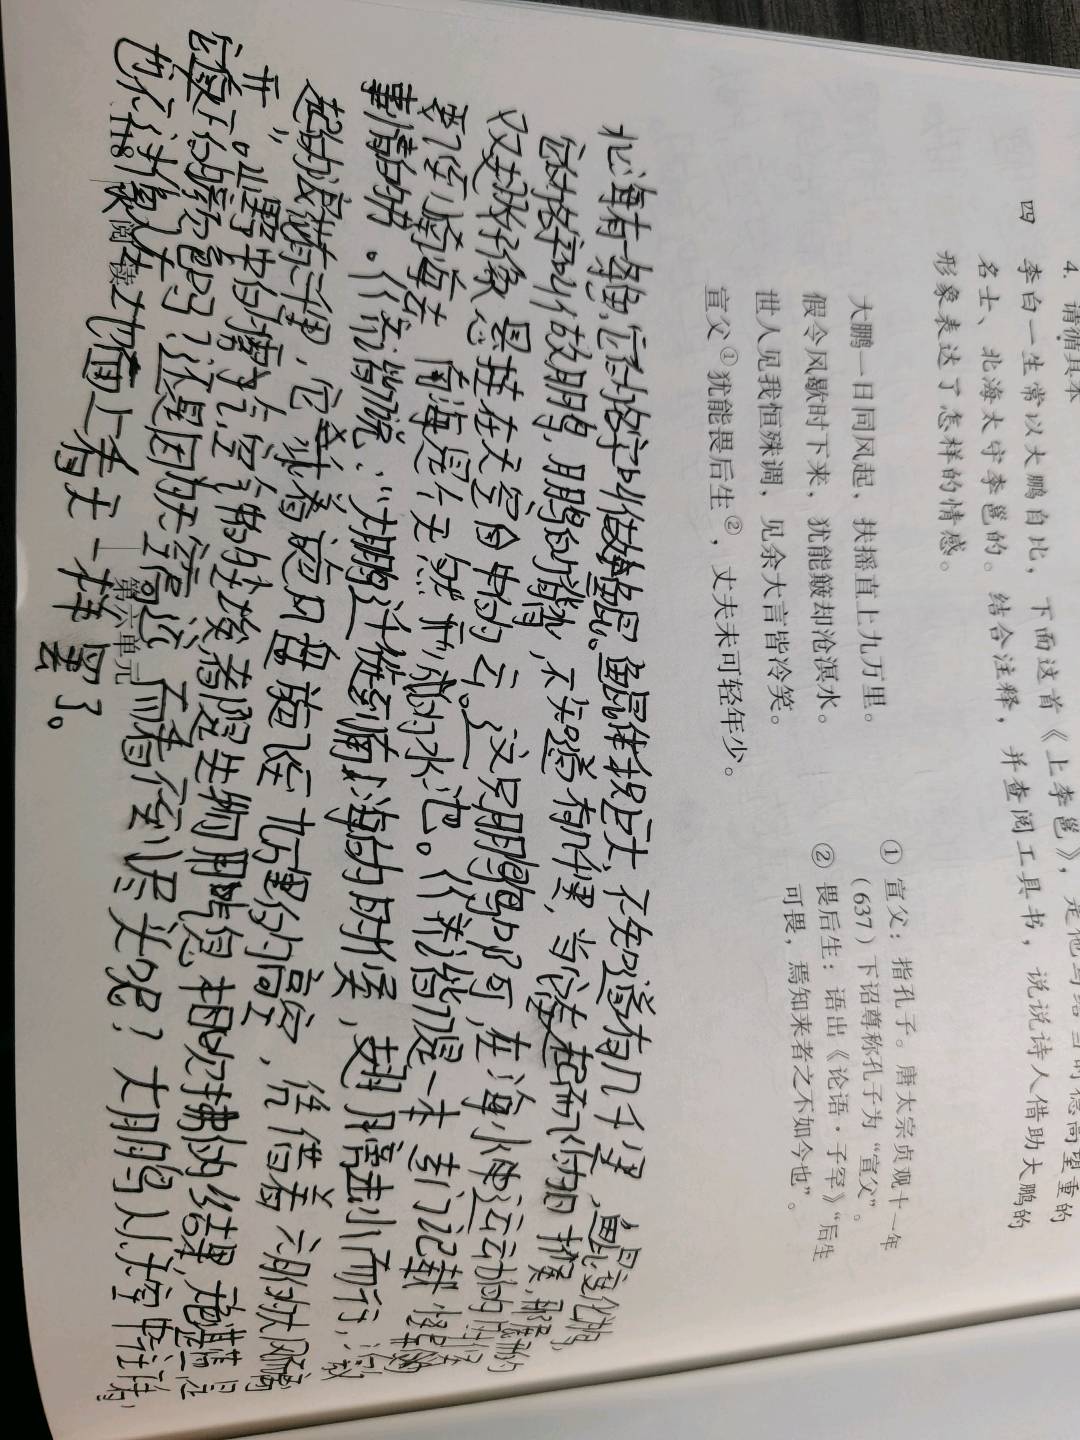 4. 请循其本
四 李白一生常以大鹏自比，下面这首《上李邕》，是他写给当时德高望重的
名士、北海太守李邕的。结合注释，并查阅工具书，说说诗人借助大鹏的
形象表达了怎样的情感。
大鹏一日同风起，扶摇直上九万里。
假令风歇时下来，犹能簸却沧溟水。
世人见我恒殊调，见余大言皆冷笑。
宣父①犹能畏后生②，丈夫未可轻年少。
① 宣父：指孔子。唐太宗贞观十一年
（637）下诏尊称孔子为“宣父”。
② 畏后生：语出《论语·子罕》“后生
可畏，焉知来者之不如今也”。
北海有一条鱼，它的名字叫做鲲。鲲的体积巨大，不知道有几千里，鲲变化为鸟，
它的名字叫做鹏，鹏的脊背，不知道有几千里，当它振翅起而飞的时候，那展开的
双翅就好像悬挂在天空中的云。这只鹏鸟啊，在海水运动的时候
要飞到南海去，南海是个天然形成的水池。《齐谐》是一本专门记载怪异
事情的书。《齐谐》说：“大鹏迁徙到南海的时候，翅膀击水而行，激
起的浪花有千里，它乘着旋风盘旋飞至九万里的高空，凭借着六月的大风离
开”。山野中的雾气，空气中的尘埃都是生物用气息相吹拂的结果。天色湛蓝，是
它真正的颜色吗？还是因为天空高远而看不到尽头呢？大鹏鸟从高空中往下看，
也不过就像人在地面上看天一样罢了。
阅读
第六单元